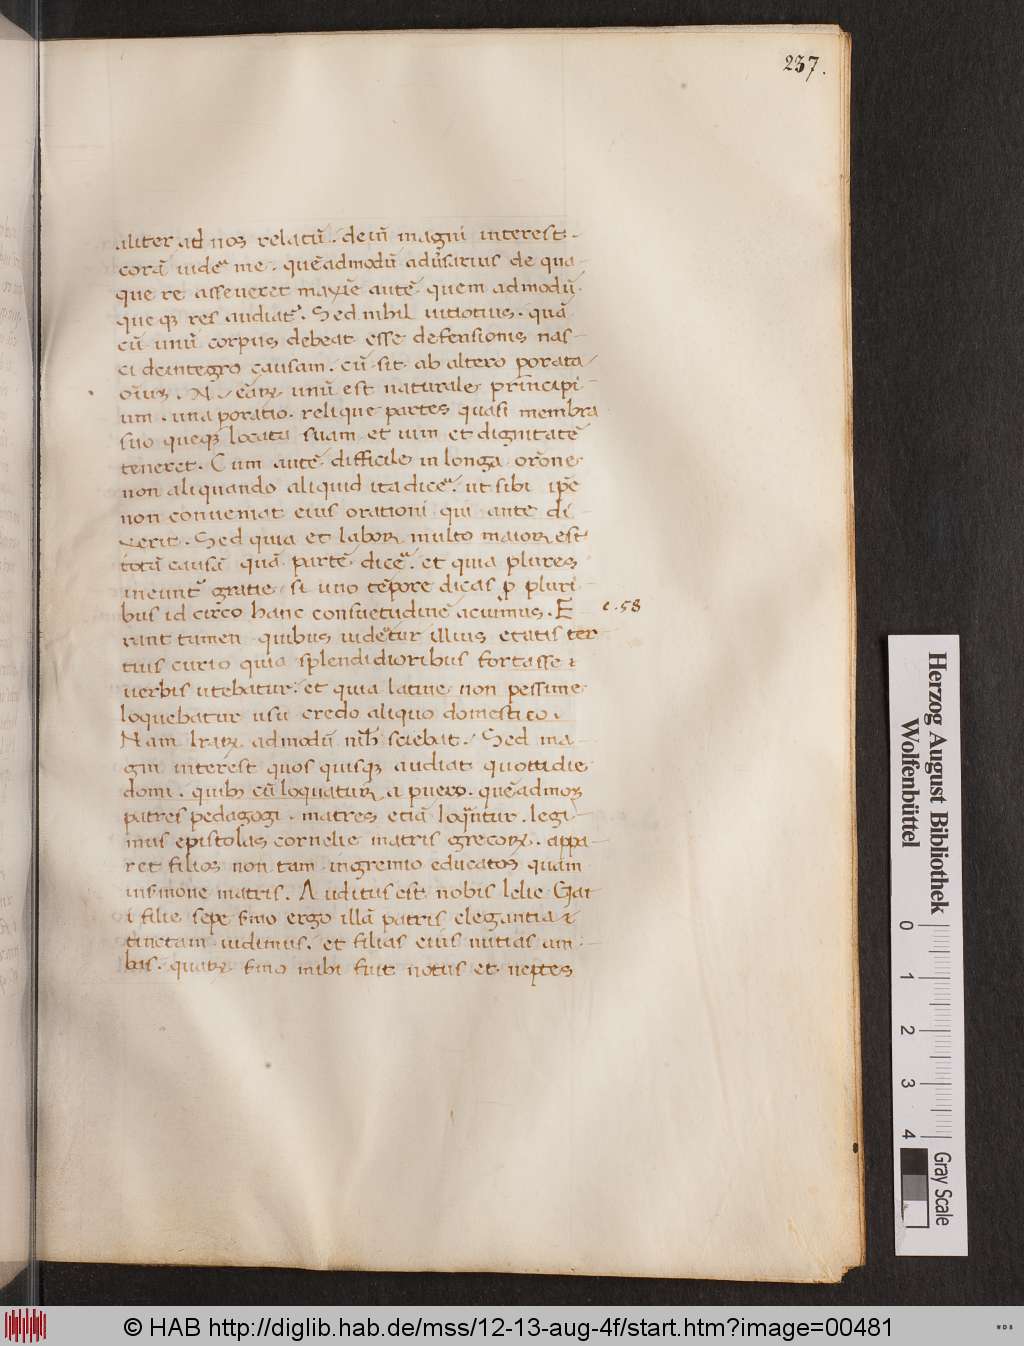 237.
aliter ad nos relatū. dein̄ magni interest.
corā uideᵃ me. quēadmodū adūsarius de qua
que re asseueret maxīe autē quem admodū.
queqꝫ res audiatᷣ. Sed nihil uitiotius. quā
cū unū corpus debeat esse defensionis nas-
ci deintegro causam. cū sit ab altero porata
oīuꝫ. N eāꝝ unū est naturale principi
um. una poratio. relique partes quasi membra
suo queqꝫ locata suam et uim et dignitatē
teneret. Cum autē difficile in longa orōne
non aliquando aliquid ita diceᵃ. ut sibi ip̄e
non conueniat eius orationi qui ante di
xerit. Sed quia et laboꝝ multo maioꝝ est
totā causā quā partē diceᵃ. et quia plures
ineuntᷣ gratie si uno tēpore dicas p̱ pluri
bus id circo hanc consuetudinē acuimus. E
c. 58
rant tamen quibus uideᵃtur illius etatis ter
tius curio quia splendidioribus fortasse ⁊
uerbis utebatur. et quia latine non pessime
loquebatur usu credo aliquo domestico.
Nam lraꝝ admodū nihl̄ sciebat. Sed ma-
gni interest quos quisqꝫ audiat quottidie
domi. quibꝫ cū loquatur a puero. quēadmoꝫ
patres pedagogi. matres etiā loqūntur. legi-
mus epistolas cornelie matris grecoꝝ. appa-
ret filios non tam ingremio educatos quam
insmone matris. Auditus est nobis lelie Gai
i filie sepe smo ergo illā patris elegantia ⁊
tinctam uidimus. et filias eius mutias am-
bas. quaꝝ smo mihi fuit notus et neptes
Herzog August Bibliothek
Wolfenbüttel
0 1 2 3 4
Gray Scale
© HAB http://diglib.hab.de/mss/12-13-aug-4f/start.htm?image=00481